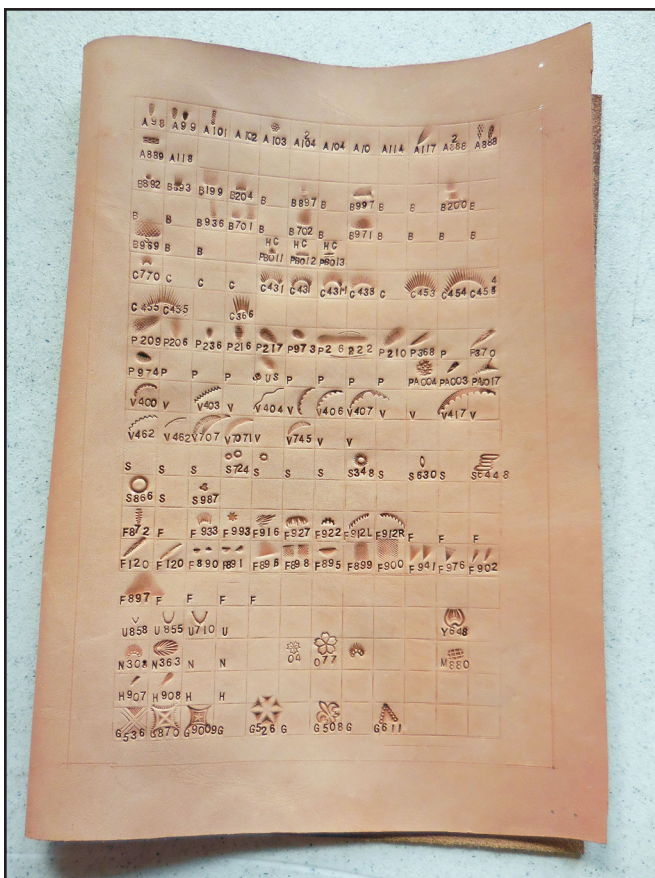 A98 A99 A101 A102 A103 A104 A104 A10 A114 A117 A888 A868
2 2
A889 A118
B892 B893 B199 B204 B B897 B B997 B B B200 B
B B B936 B701 B B702 B B971 B B B B
B969 B B HC HC HC
PB011 PB012 PB013
C770 C C C C431 C431 C431 C433 C C453 C454 C455
4
C455 C435 C366
P209 P206 P236 P216 P217 P973 P26 P222 P210 P368 P P370
P974 P P P US P P P P PA004 PA003 PA017
V400 V V403 V V404 V V406 V407 V V V417 V
V462 V462 V707 V707 V V745 V V
S S S S724 S S S S348 S S630 S S6448
S866 S S987
F872 F F933 F993 F916 F927 F922 F912L F912R F F F
F120 F120 F890 F891 F896 F898 F895 F899 F900 F941 F976 F902
F897 F F F F
U858 U855 U710 U Y648
N308 N363 N N 04 077 M880
H907 H908 H H
G536 G870 G9009 G G526 G G508 G G611